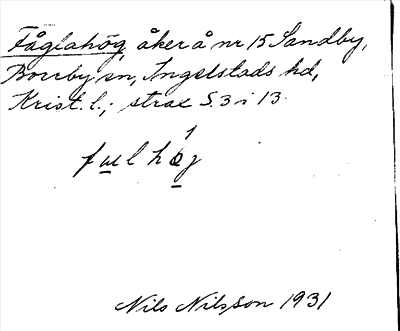 Fåglahög, åker å nr 15 Sandby,
Borrby sn, Ingelstads hd,
Krist. l.; strax S. 3 i 13.
Nils Nilsson 1931